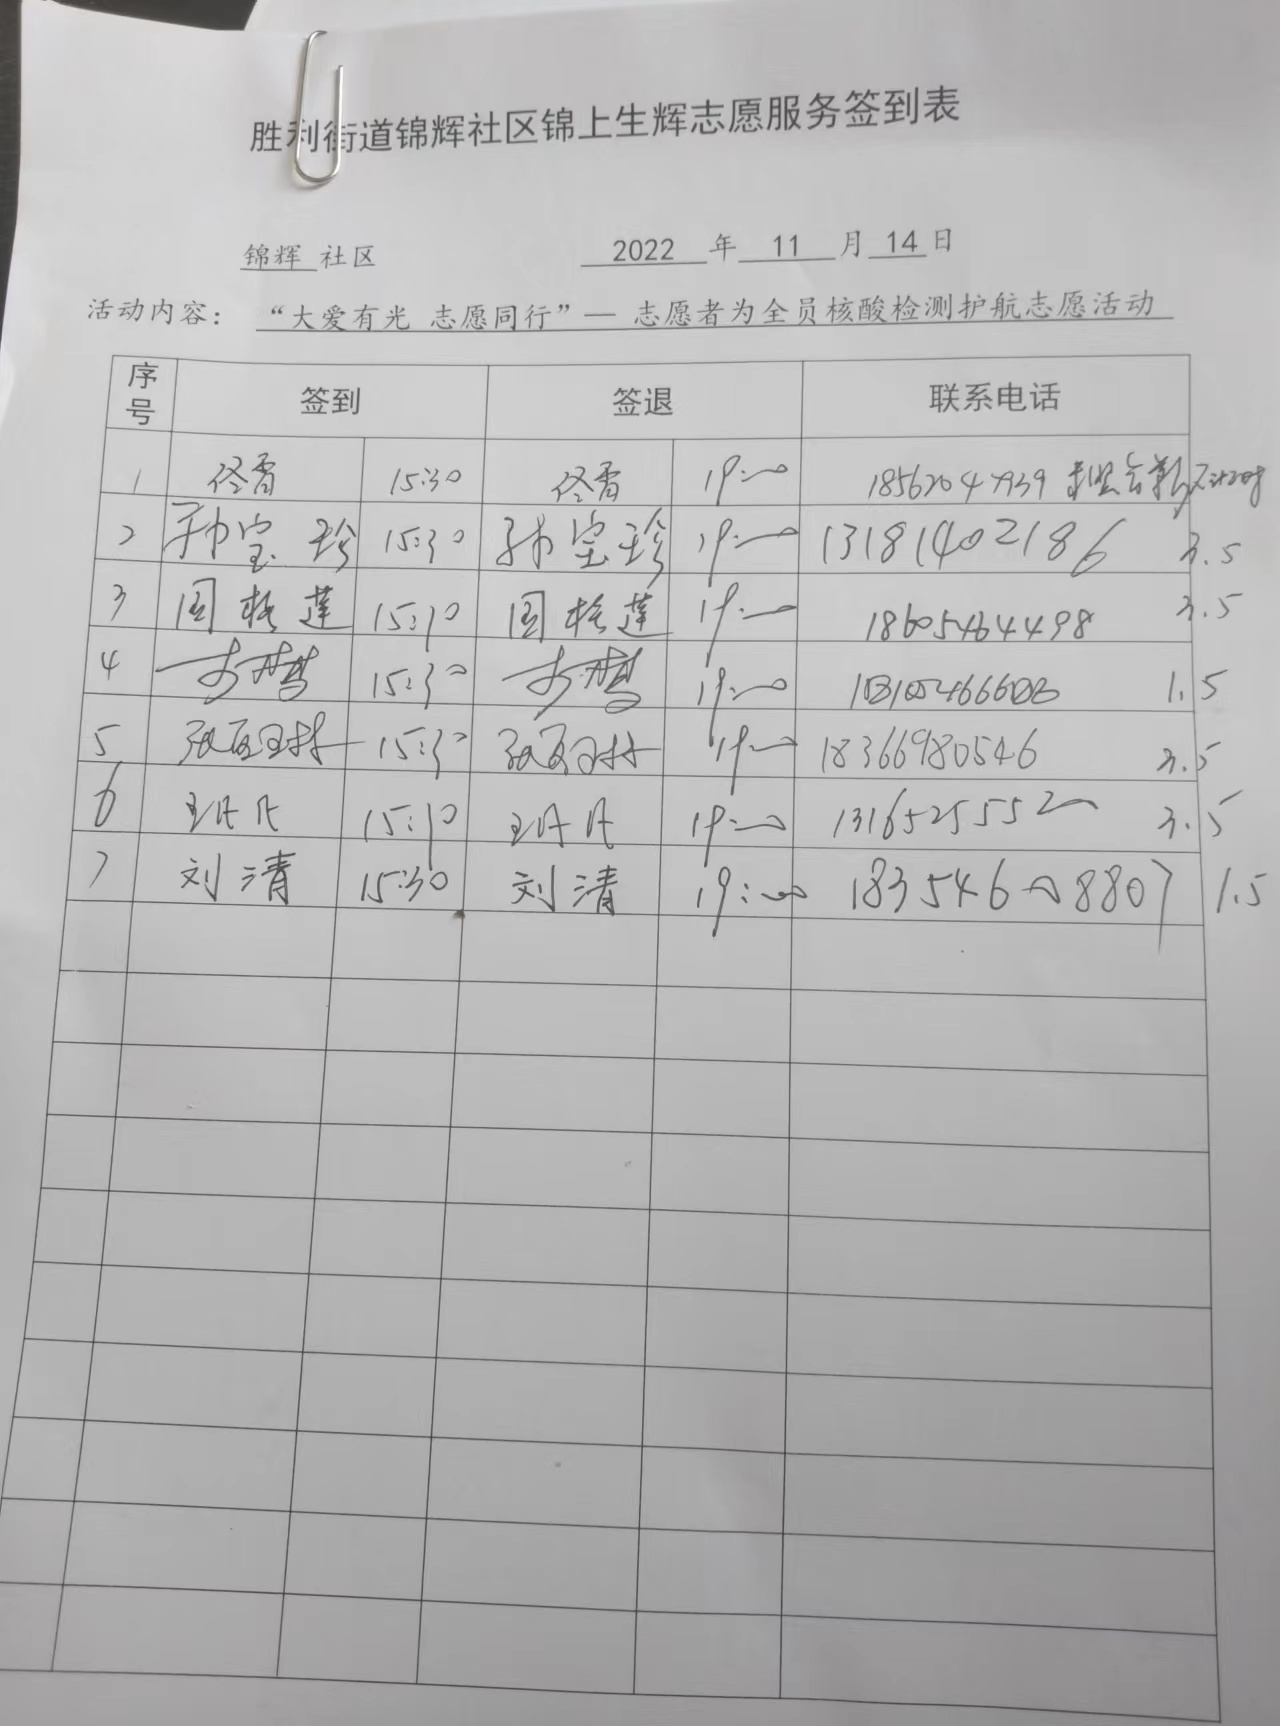 胜利街道锦辉社区锦上生辉志愿服务签到表
锦辉 社区 2022 年 11 月 14 日
活动内容： “大爱有光 志愿同行”— 志愿者为全员核酸检测护航志愿活动
序号 签到 签退 联系电话
1 佟霄 15:30 佟霄 19:00
2 孙宝珍 15:30 孙宝珍 19:00 13181402186 3.5
3 15:30 19:00 18605464498 3.5
4 15:30 19:00 1.5
5 15:30 19:00 18366980546 3.5
6 15:30 19:00 13165255552 3.5
7 刘清 15:30 刘清 19:00 18354608807 1.5